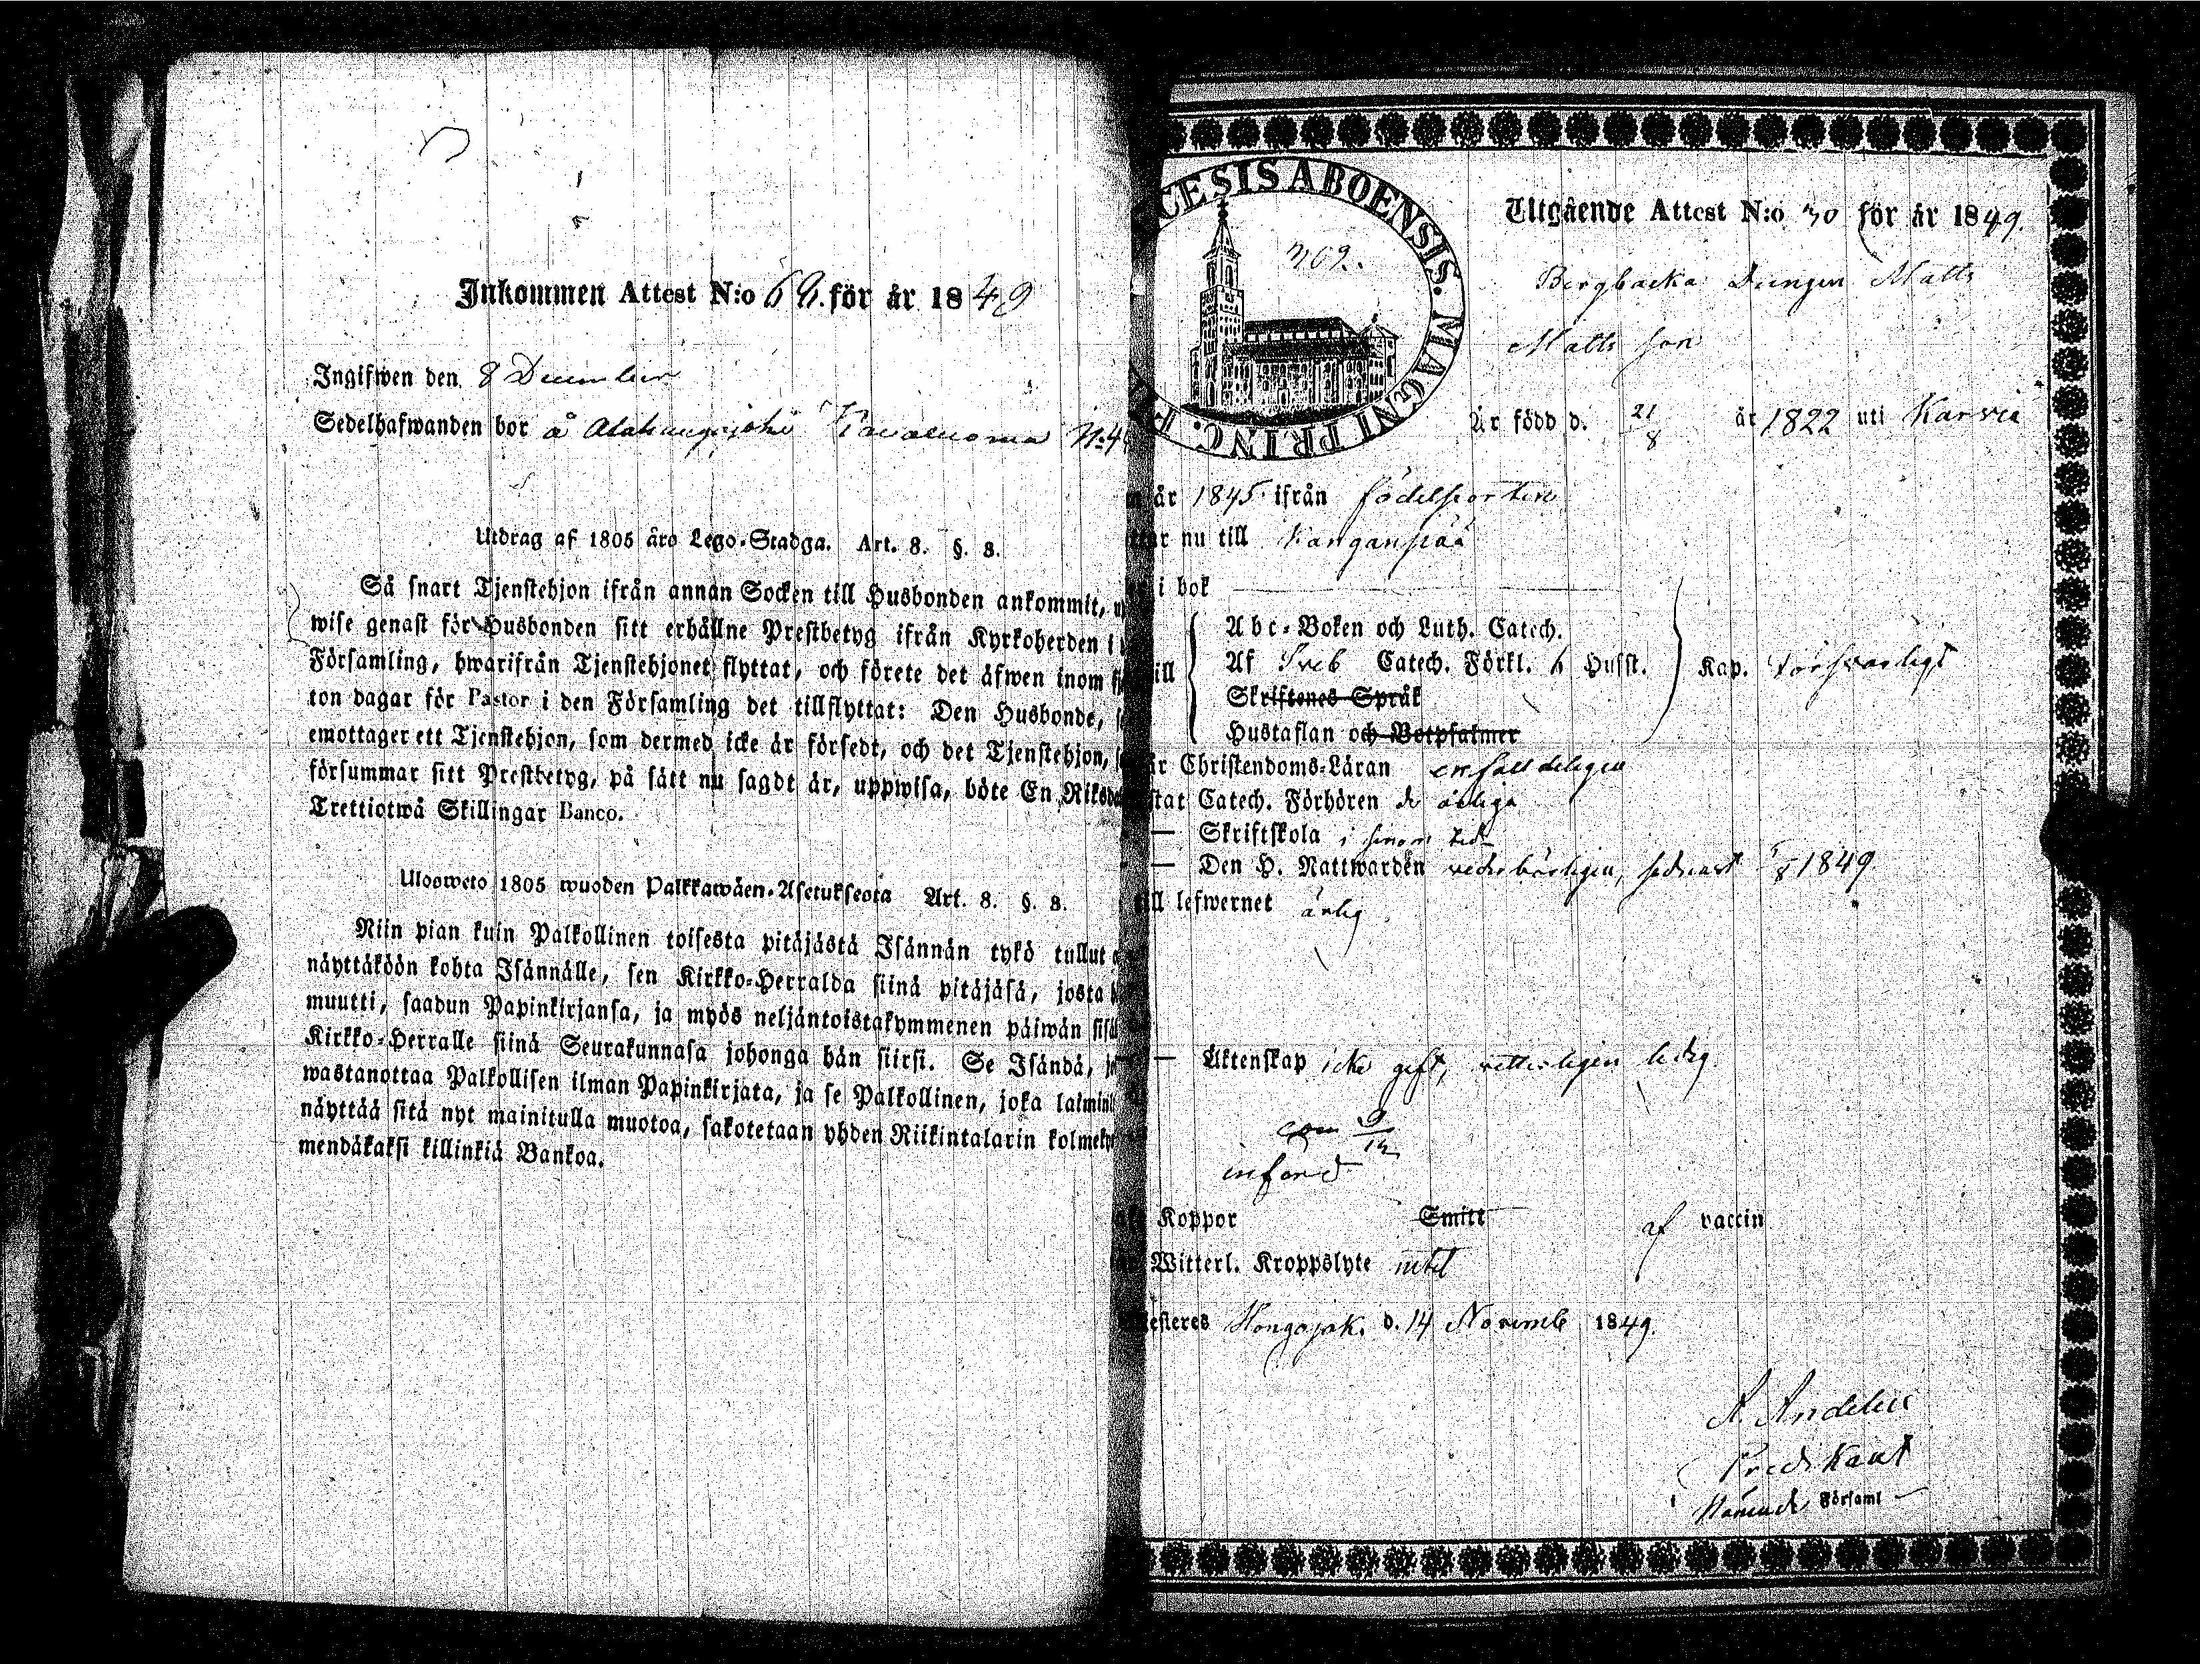 Inkommen Attest N:o 69. för år 1849
Ingifwen den 8 December
Sedelhafwanden bor å N:4
Utdrag af 1805 års Lego-Stadga. Art. 8. §. 8.
Så snart Tjenstehjon ifrån annan Socken till Husbonden ankommit,
wise genast för Husbonden sitt erhållne Prestbetyg ifrån Kyrkoherden i
Församling, hwarifrån Tjenstehjonet flyttat, och förete det äfwen inom
ton dagar för Pastor i den Församling det tillflyttat: Den Husbonde,
emottager ett Tjenstehjon, som dermed icke är försedt, och det Tjenstehjon,
försummar sitt Prestbetyg, på sätt nu sagdt är, uppwisa, böte En Riksda
Trettiotwå Skillingar Banco.
Ulosweto 1805 wuoden Palkkawäen-Asetuksesta Art. 8. §. 8.
Niin pian kuin Palkollinen toisesta pitäjästä Isännän tykö tullut
näyttäköön kohta Isännälle, sen Kirkko-Herralda siinä pitäjäsä, josta
muutti, saadun Papinkirjansa, ja myös neljäntoistakymmenen päiwän sisäl
Kirkko-Herralle siinä Seurakunnasa johonga hän siirsi. Se Isändä,
wastanottaa Palkollisen ilman Papinkirjata, ja se Palkollinen, joka laimin
näyttää sitä nyt mainitulla muotoa, sakotetaan yhden Riikintalarin kolmeky
mendäkaksi killinkiä Bankoa.
CESIS ABOENSIS. MAGNI PRINC. F
309.
Utgående Attest N:o 30 för år 1849.
Bergbacka Drengen Matts
Matts son
Är född d. 21/8 år 1822 uti Karvia
år 1845 ifrån födelseorten
ttar nu till Kanganpää
i bok
Abc-Boken och Luth. Catech.
Af Sveb Catech. Förkl. h Husst. Kap. försvarligt
Skriftenes Språk
Hustaflan och Botpsalmer
år Christendoms-Läran enfalldeligen
stat Catech. Förhören de årliga
— Skriftskola i sinom tid
— Den H. Nattwarden vederbörligen, sednast 5/8 1849
till lefwernet ärlig
— Äktenskap icke gift, vetterligen ledig.
9/12
införd
Koppor Smitt af vaccin
Witterl. Kroppslyte intet
testeres Hongojok. d. 14 Novemb 1849.
A. Andelin
Predikant
Församl